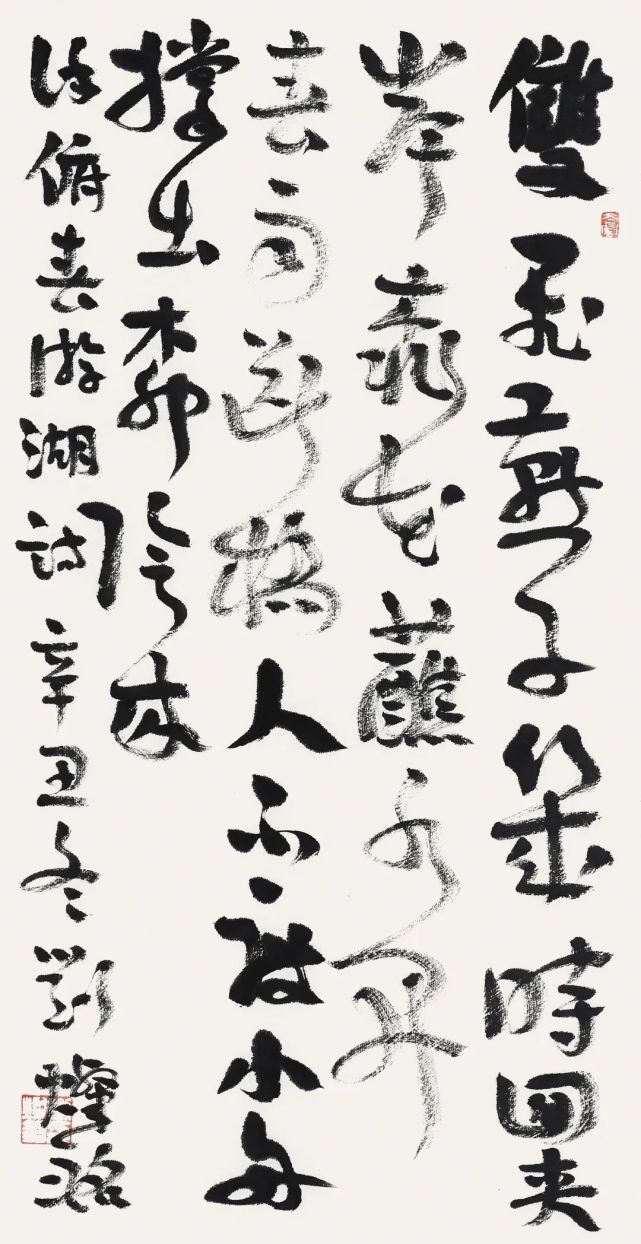 雙飛燕子幾時回夾
岸桃花蘸水開
春雨斷橋人不度小舟
撐出柳陰來
徐俯春游湖詩辛丑冬劉